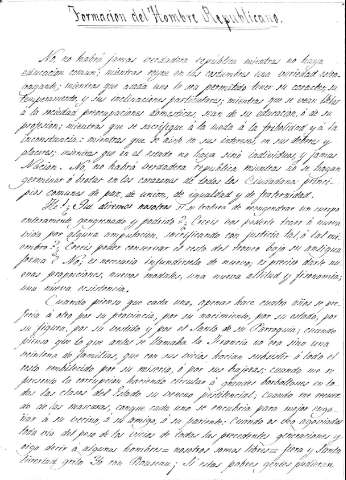 Formacion del Hombre Republicano.
No, no habrá jamas verdadera república mientras no haya
educacion comun; mientras reyne en las costumbres una variedad estra-
vagante; mientras que á cada uno le sea permitido tener su caracter, su
temperamento, y sus inclinaciones particulares; mientras que se vean
á la sociedad preocupaciones domesticas, sean de su educacion, ó de su
profesion; mientras que se sacrifique á la moda á la frivolidad y á la
inconstancia; mientras que se aisle en sus intereses, en sus deberes y
placeres; mientras que en el estado no haya sino individuos, y jamas
Nacion. No, no habrá verdadera república, mientras no se hagan
germinar ó brotar en los corazones de todos los Ciudadanos princi-
pios comunes de paz, de union, de igualdad y de fraternidad.
diremos nosotros tratan de un cuerpo
enteramente gangrenado y podrido? Creeis vos poderle traer á nueva
vida por alguna amputacion, sacrificando con justicia tal ó tal mi-
embro? Creeis poder conservar el resto del tronco bajo su antigua
forma? No; es necesario infundirsela de nuevo, es preciso darle nu-
evas proporciones, nuevos modales, una nueva altitud y fisonomia;
una nueva existencia.
Cuando pienso que cada uno, apenas hace cuatro años se pre-
feria á otro por su provincia, por su nacimiento, por su estado, por
su figura, por su vestido y por el Santo de su Parroquia; cuando
pienso que lo que antes se llamaba la Francia no era sino una
veintena de familias, que con sus vicios hacian subsistir ó todo el
resto embilecido por su miseria, ó por sus bajezas; cuando me re-
presento la corrupcion haciendo circular á grandes borbollones en to-
das las clases del Estado su veneno pestilencial; cuando me recuer-
do de las mascaras, conque cada uno se encubria para mejor enga-
ñar á su vecino, á su amigo, ó su pariente; Cuando os veo agoviados
toda via del peso de los vicios de todas las precedentes generaciones y
oigo decir á algunos hombres = nosotros somos libres = fiera y Santa
libertad grita Yo con Rousseau; Si estas pobres gentes pudieran